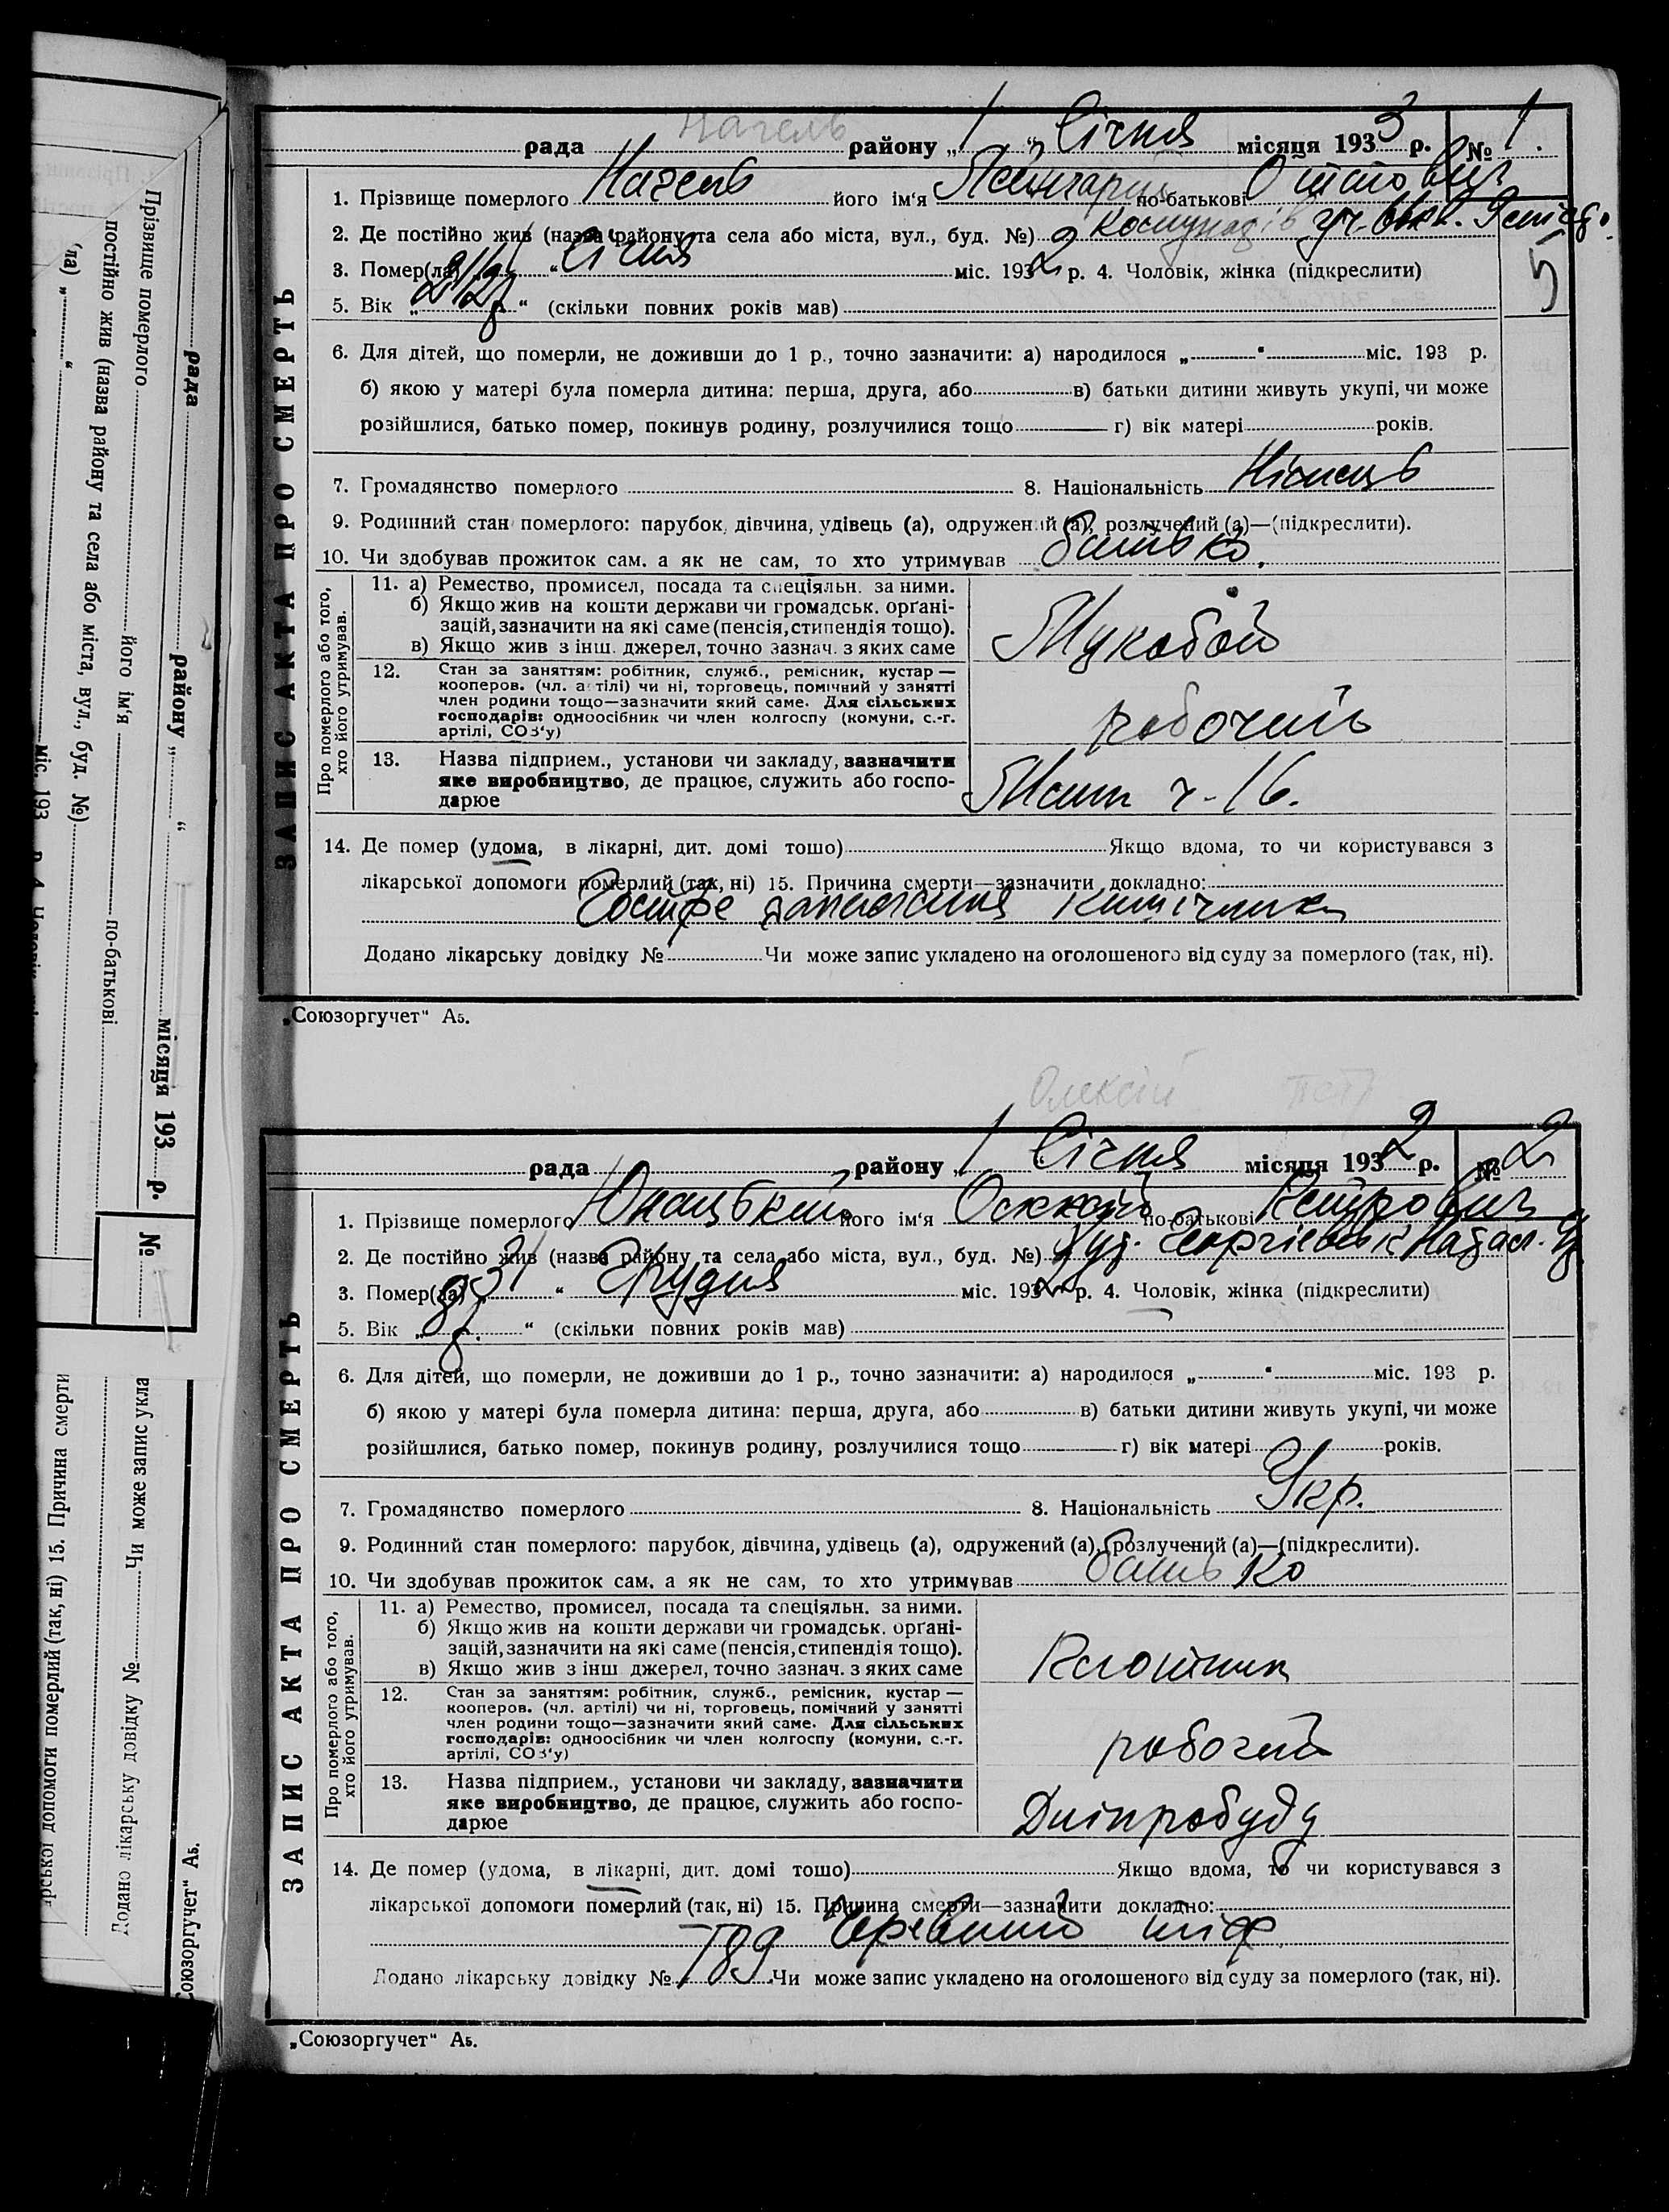 Нагель
рада району „ 1 “ Січня місяця 1933 р. № 1.
ЗАПИС АКТА ПРО СМЕРТЬ
1. Прізвище померлого Нагель його ім‘я по-батькові Оттович
2. Де постійно жив (назва району та села або міста, вул., буд. №)
3. Помер(ла) „ “ Січня міс. 1932 р. 4. Чоловік, жінка (підкреслити)
5
5. Вік „ “ (скільки повних років мав)
6. Для дітей, що померли, не доживши до 1 р., точно зазначити: а) народилося „ “ міс. 193 р.
б) якою у матері була померла дитина: перша, друга, або в) батьки дитини живуть укупі, чи може
розійшлися, батько помер, покинув родину, розлучилися тощо г) вік матері років.
7. Громадянство померлого 8. Національність Німець
9. Родинний стан померлого: парубок, дівчина, удівець (а), одружений (а), розлучений (а)—(підкреслити).
10. Чи здобував прожиток сам, а як не сам, то хто утримував батько.
Про померлого або того,
хто його утримував.
11. а) Ремество, промисел, посада та спеціяльн. за ними.
б) Якщо жив на кошти держави чи громадськ. орґані-
зацій, зазначити на які саме (пенсія, стипендія тощо).
в) Якщо жив з інш. джерел, точно зазнач. з яких саме
Мукобой
12. Стан за заняттям: робітник, служб., ремісник, кустар —
кооперов. (чл. артілі) чи ні, торговець, помічний у занятті
член родини тощо—зазначити який саме. Для сільських
господарів: одноосібник чи член колгоспу (комуни, с.-г.
артілі, СОЗ‘у)
робочий
13. Назва підприєм., установи чи закладу, зазначити
яке виробництво, де працює, служить або госпо-
дарює
ч-16.
14. Де помер (удома, в лікарні, дит. домі тошо) Якщо вдома, то чи користувався з
лікарської допомоги померлий (так, ні) 15. Причина смерти—зазначити докладно:
Гостре запалення кишечника
Додано лікарську довідку № Чи може запис укладено на оголошеного від суду за померлого (так, ні).
„Союзоргучет“ А5.
Олексій Пет
рада району „ 1 “ Січня місяця 1932 р. № 2
ЗАПИС АКТА ПРО СМЕРТЬ
1. Прізвище померлого Юнацький його ім‘я по-батькові Петрович
2. Де постійно жив (назва району та села або міста, вул., буд. №)
3. Помер(ла) „ 31 “ Грудня міс. 1932 р. 4. Чоловік, жінка (підкреслити)
5. Вік „ “ (скільки повних років мав)
6. Для дітей, що померли, не доживши до 1 р., точно зазначити: а) народилося „ “ міс. 193 р.
б) якою у матері була померла дитина: перша, друга, або в) батьки дитини живуть укупі, чи може
розійшлися, батько помер, покинув родину, розлучилися тощо г) вік матері років.
7. Громадянство померлого 8. Національність Укр.
9. Родинний стан померлого: парубок, дівчина, удівець (а), одружений (а), розлучений (а)—(підкреслити).
10. Чи здобував прожиток сам, а як не сам, то хто утримував батько
Про померлого або того,
хто його утримував.
11. а) Ремество, промисел, посада та спеціяльн. за ними.
б) Якщо жив на кошти держави чи громадськ. орґані-
зацій, зазначити на які саме (пенсія, стипендія тощо).
в) Якщо жив з інш джерел, точно зазнач. з яких саме
12. Стан за заняттям: робітник, служб., ремісник, кустар —
кооперов. (чл. артілі) чи ні, торговець, помічний у занятті
член родини тощо—зазначити який саме. Для сільських
господарів: одноосібник чи член колгоспу (комуни, с.-г.
артілі, СОЗ‘у)
робочий
13. Назва підприєм., установи чи закладу, зазначити
яке виробництво, де працює, служить або госпо-
дарює
Дніпробуду
14. Де помер (удома, в лікарні, дит. домі тошо) Якщо вдома, то чи користувався з
лікарської допомоги померлий (так, ні) 15. Причина смерти—зазначити докладно:
Черевний тиф
Додано лікарську довідку № 789 Чи може запис укладено на оголошеного від суду за померлого (так, ні).
„Союзоргучет“ А5.
рада району „ “ місяця 193 р. №
Прізвище померлого його ім‘я по-батькові
постійно жив (назва району та села або міста, вул., буд. №)
(ла) „ “ міс. 193
лікарської допомоги померлий (так, ні) 15. Причина смерти
Додано лікарську довідку № Чи може запис укла
Союзоргучет“ А5.